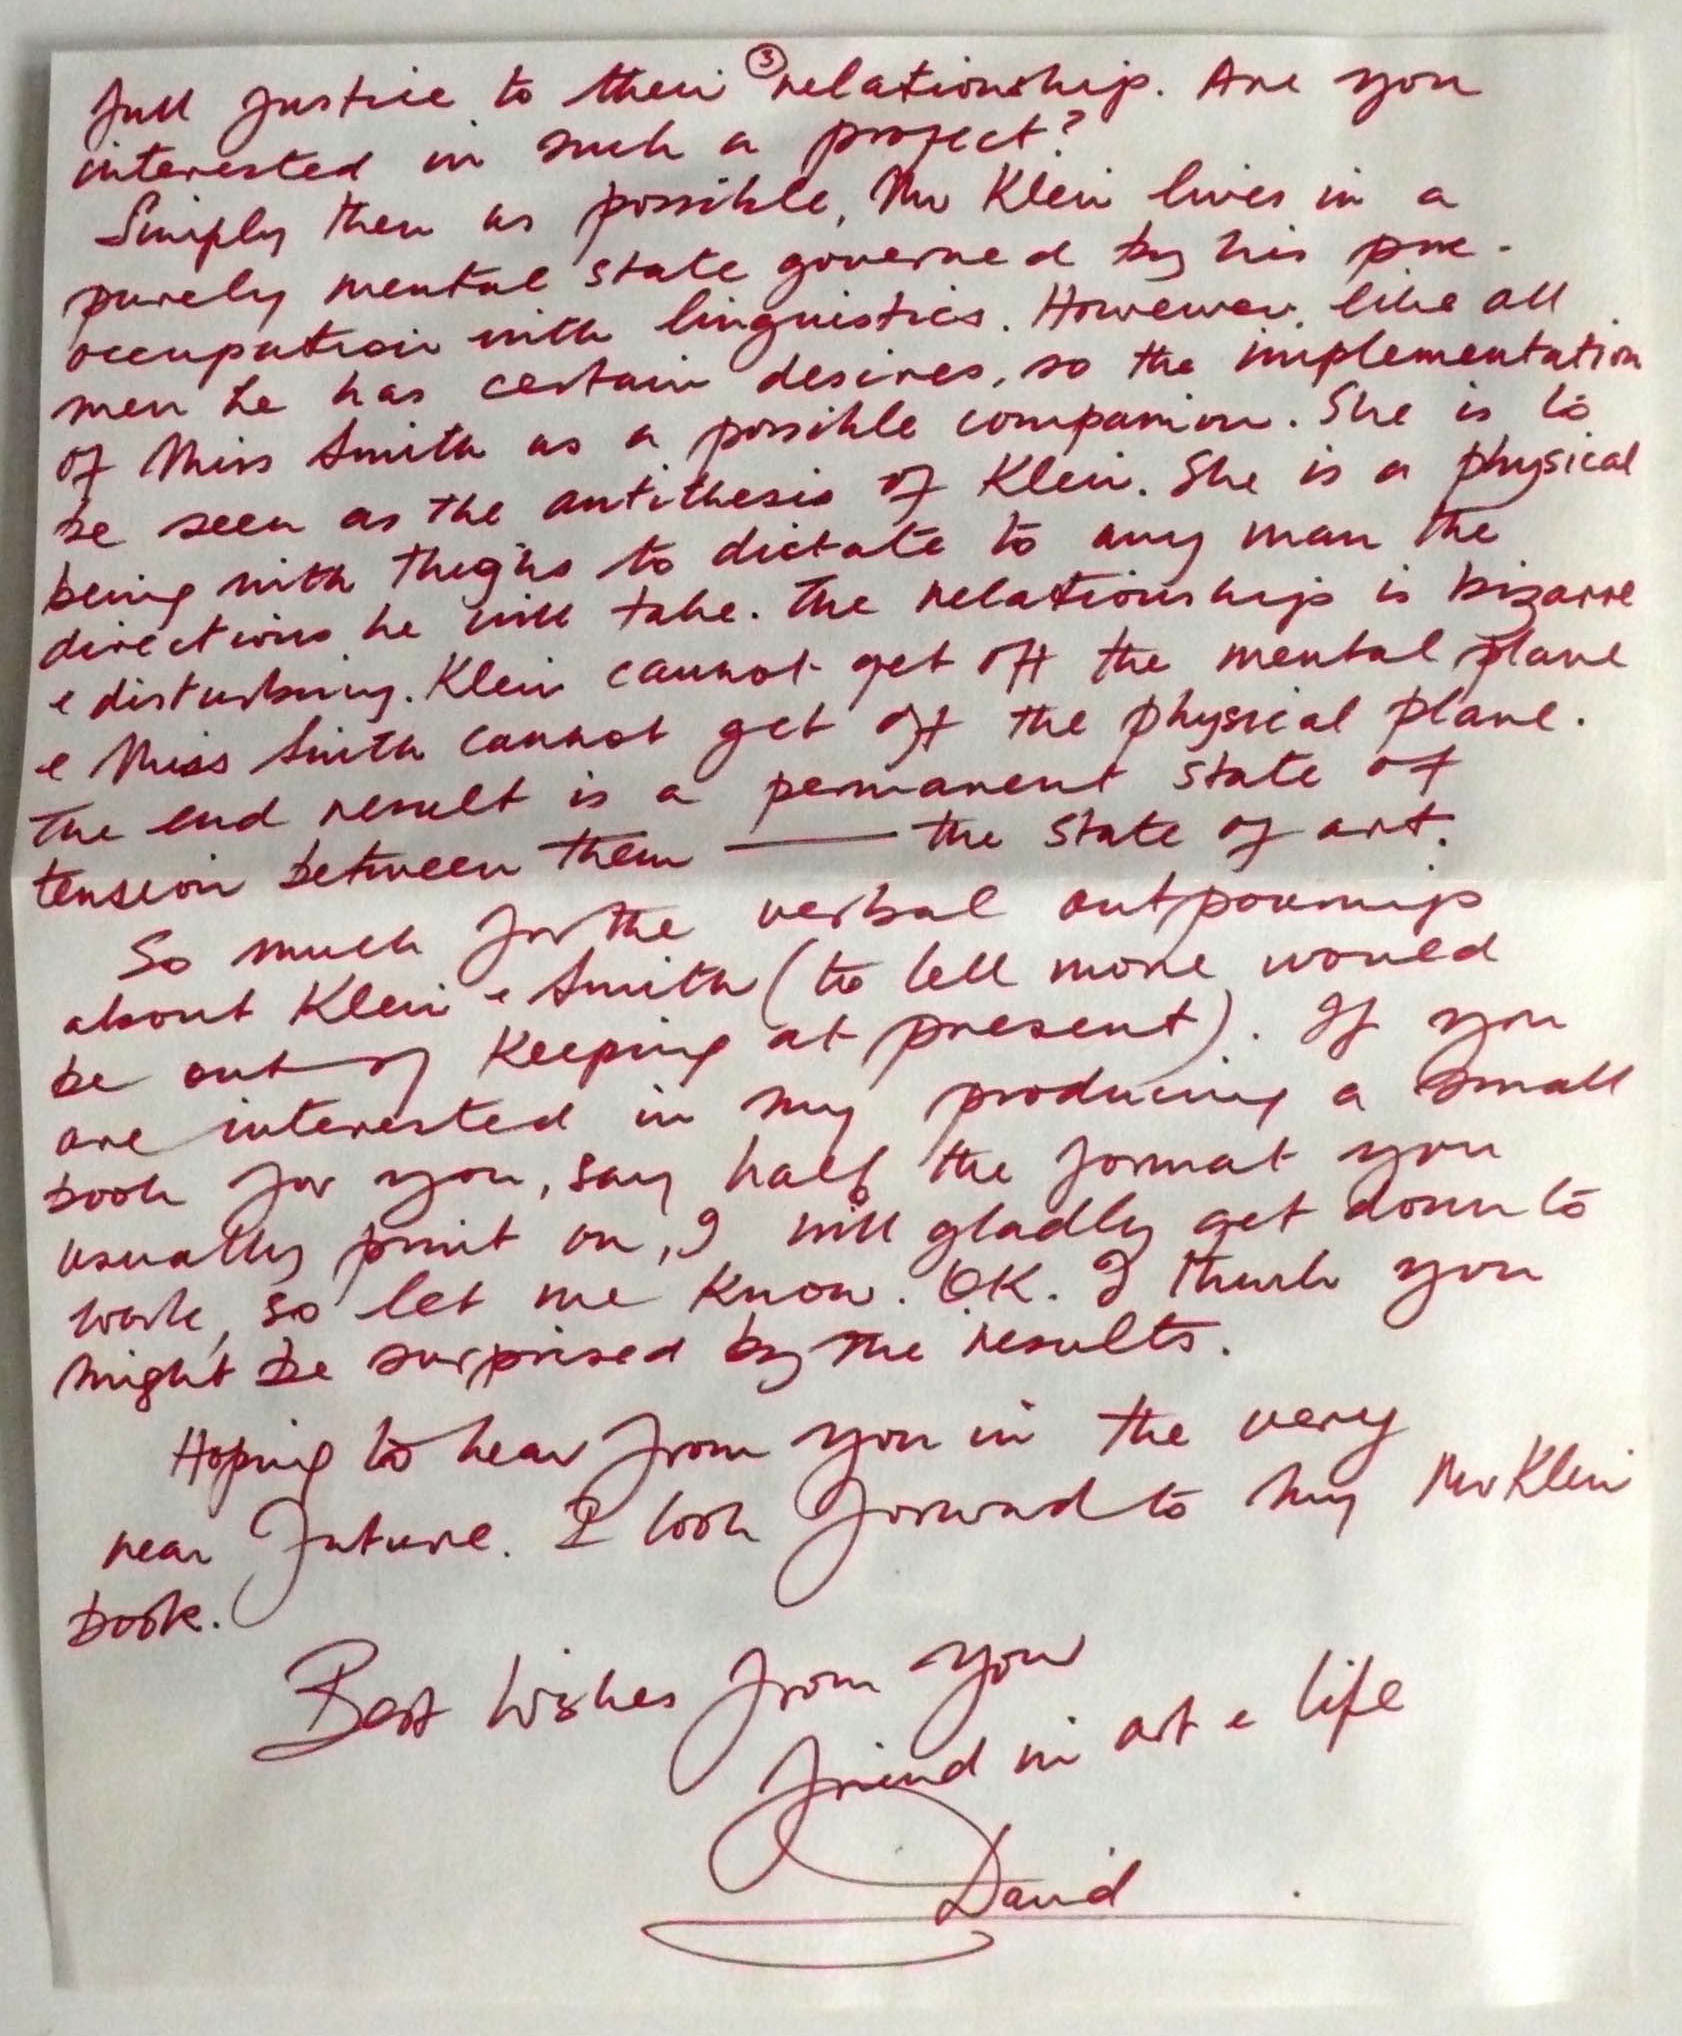 ③
full justice to their relationship. Are you
interested in such a project?
Simply then as possible, Mr Klein lives in a
purely mental state governed by his pre-
occupation with linguistics. However, like all
men he has certain desires, so the implementation
of Miss Smith as a possible companion. She is to
be seen as the antithesis of Klein. She is a physical
being with thighs to dictate to any man the
directions he will take. The relationship is bizarre
& disturbing. Klein cannot get off the mental plane
& Miss Smith cannot get off the physical plane.
The end result is a permanent state of
tension between them — the state of art.
So much for the verbal outpourings
about Klein & Smith (to tell more would
be out of keeping at present). If you
are interested in my producing a small
book for you, say half the format you
usually print on, I will gladly get down to
work, so let me know. OK. I think you
might be surprised by the results.
Hoping to hear from you in the very
near future. I look forward to my Mr Klein
book.
Best wishes from your
friend in art & life
David